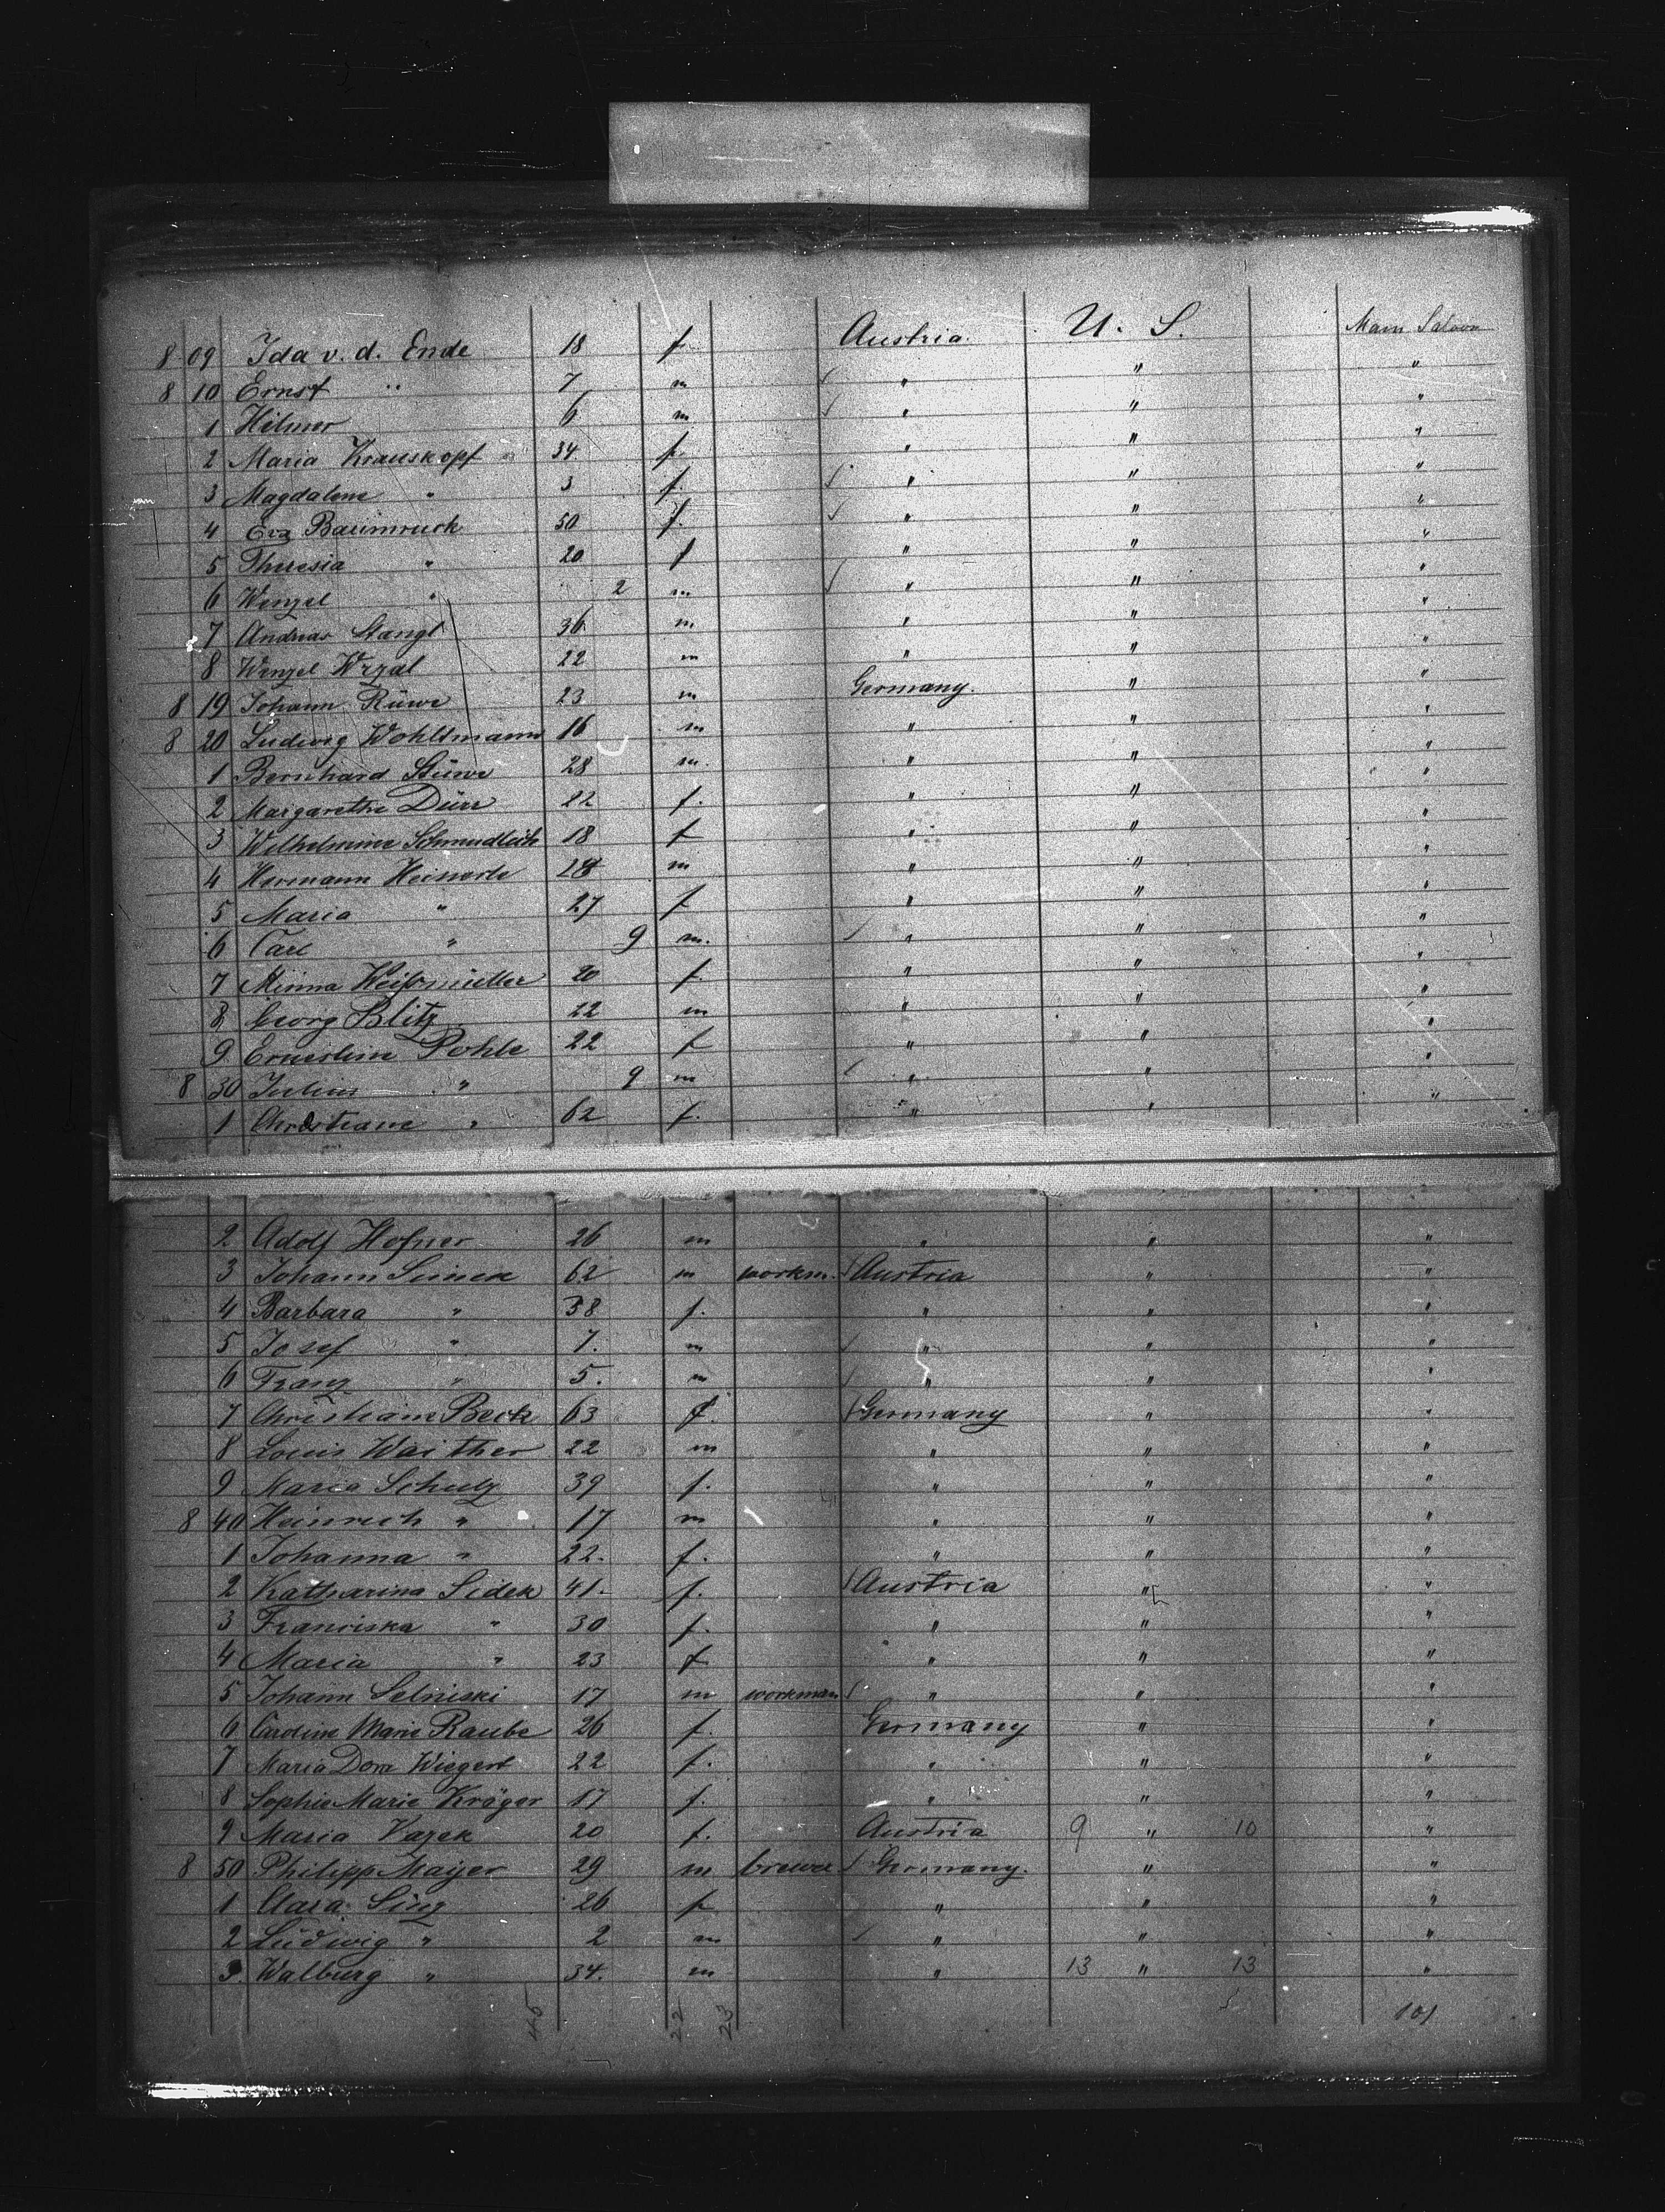 8 09 Ida v. d. Ende 18 f. Austria. U. S. Main Saloon
8 10 Ernst " 7 m " " "
1 Hilmer 6 m " " "
2 Maria Krauskopf 34 f. " " "
3 Magdalena " 3 f. " " "
4 Eva Baumruck 50 f. " " "
5 Theresia " 20 f " " "
6 Wenzel " 2 m " " "
7 Andreas Stangl 36 m " " "
8 Wenzel Wrzal 22 m " " "
8 19 Johann Rüwe 23 m Germany. " "
8 20 Ludwig Wohltmann 16 m " " "
1 Bernhard Stüwe 28 m. " " "
2 Margarethe Dürr 22 f. " " "
3 Wilhelmine 18 f " " "
4 Hermann Heinerle 28 m " " "
5 Maria " 27 f " " "
6 Carl " 9 m. " " "
7 Minna Weißmüller 20 f. " " "
8 Georg Blitz 22 m " " "
9 Ernestine Pohle 22 f " " "
8 30 Julius " 9 m " " "
1 Christiane " 62 f. " " "
2 Adolf Hofner 26 m " " "
3 Johann Simek 62 m workm. Austria " "
4 Barbara " 38 f. " " "
5 Josef " 7. m " " "
6 Franz " 5. m " " "
7 Christiane Beck 63 f. Germany " "
8 Louis Waither 22 m " " "
9 Maria Schulz 39 f. " " "
8 40 Heinrich " 17 m " " "
1 Johanna " 22. f. " " "
2 Katharina Sidek 41. f. Austria " "
3 Franciska " 30 f. " " "
4 Maria " 23 f " " "
5 Johann Selniski 17 m workman " " "
6 Caroline Marie Raube 26 f. Germany " "
7 Maria Dora Wiegert 22 f. " " "
8 Sophie Marie Kröger 17 f. " " "
9 Maria Vazek 20 f. Austria 9 " 10 "
8 50 Philipp Mayer 29 m brewer Germany. " "
1 Clara Sing 26 f " " "
2 Ludwig " 2 m " " "
3. Walburg " 34. m " 13 " 13 "
45 22 23 101